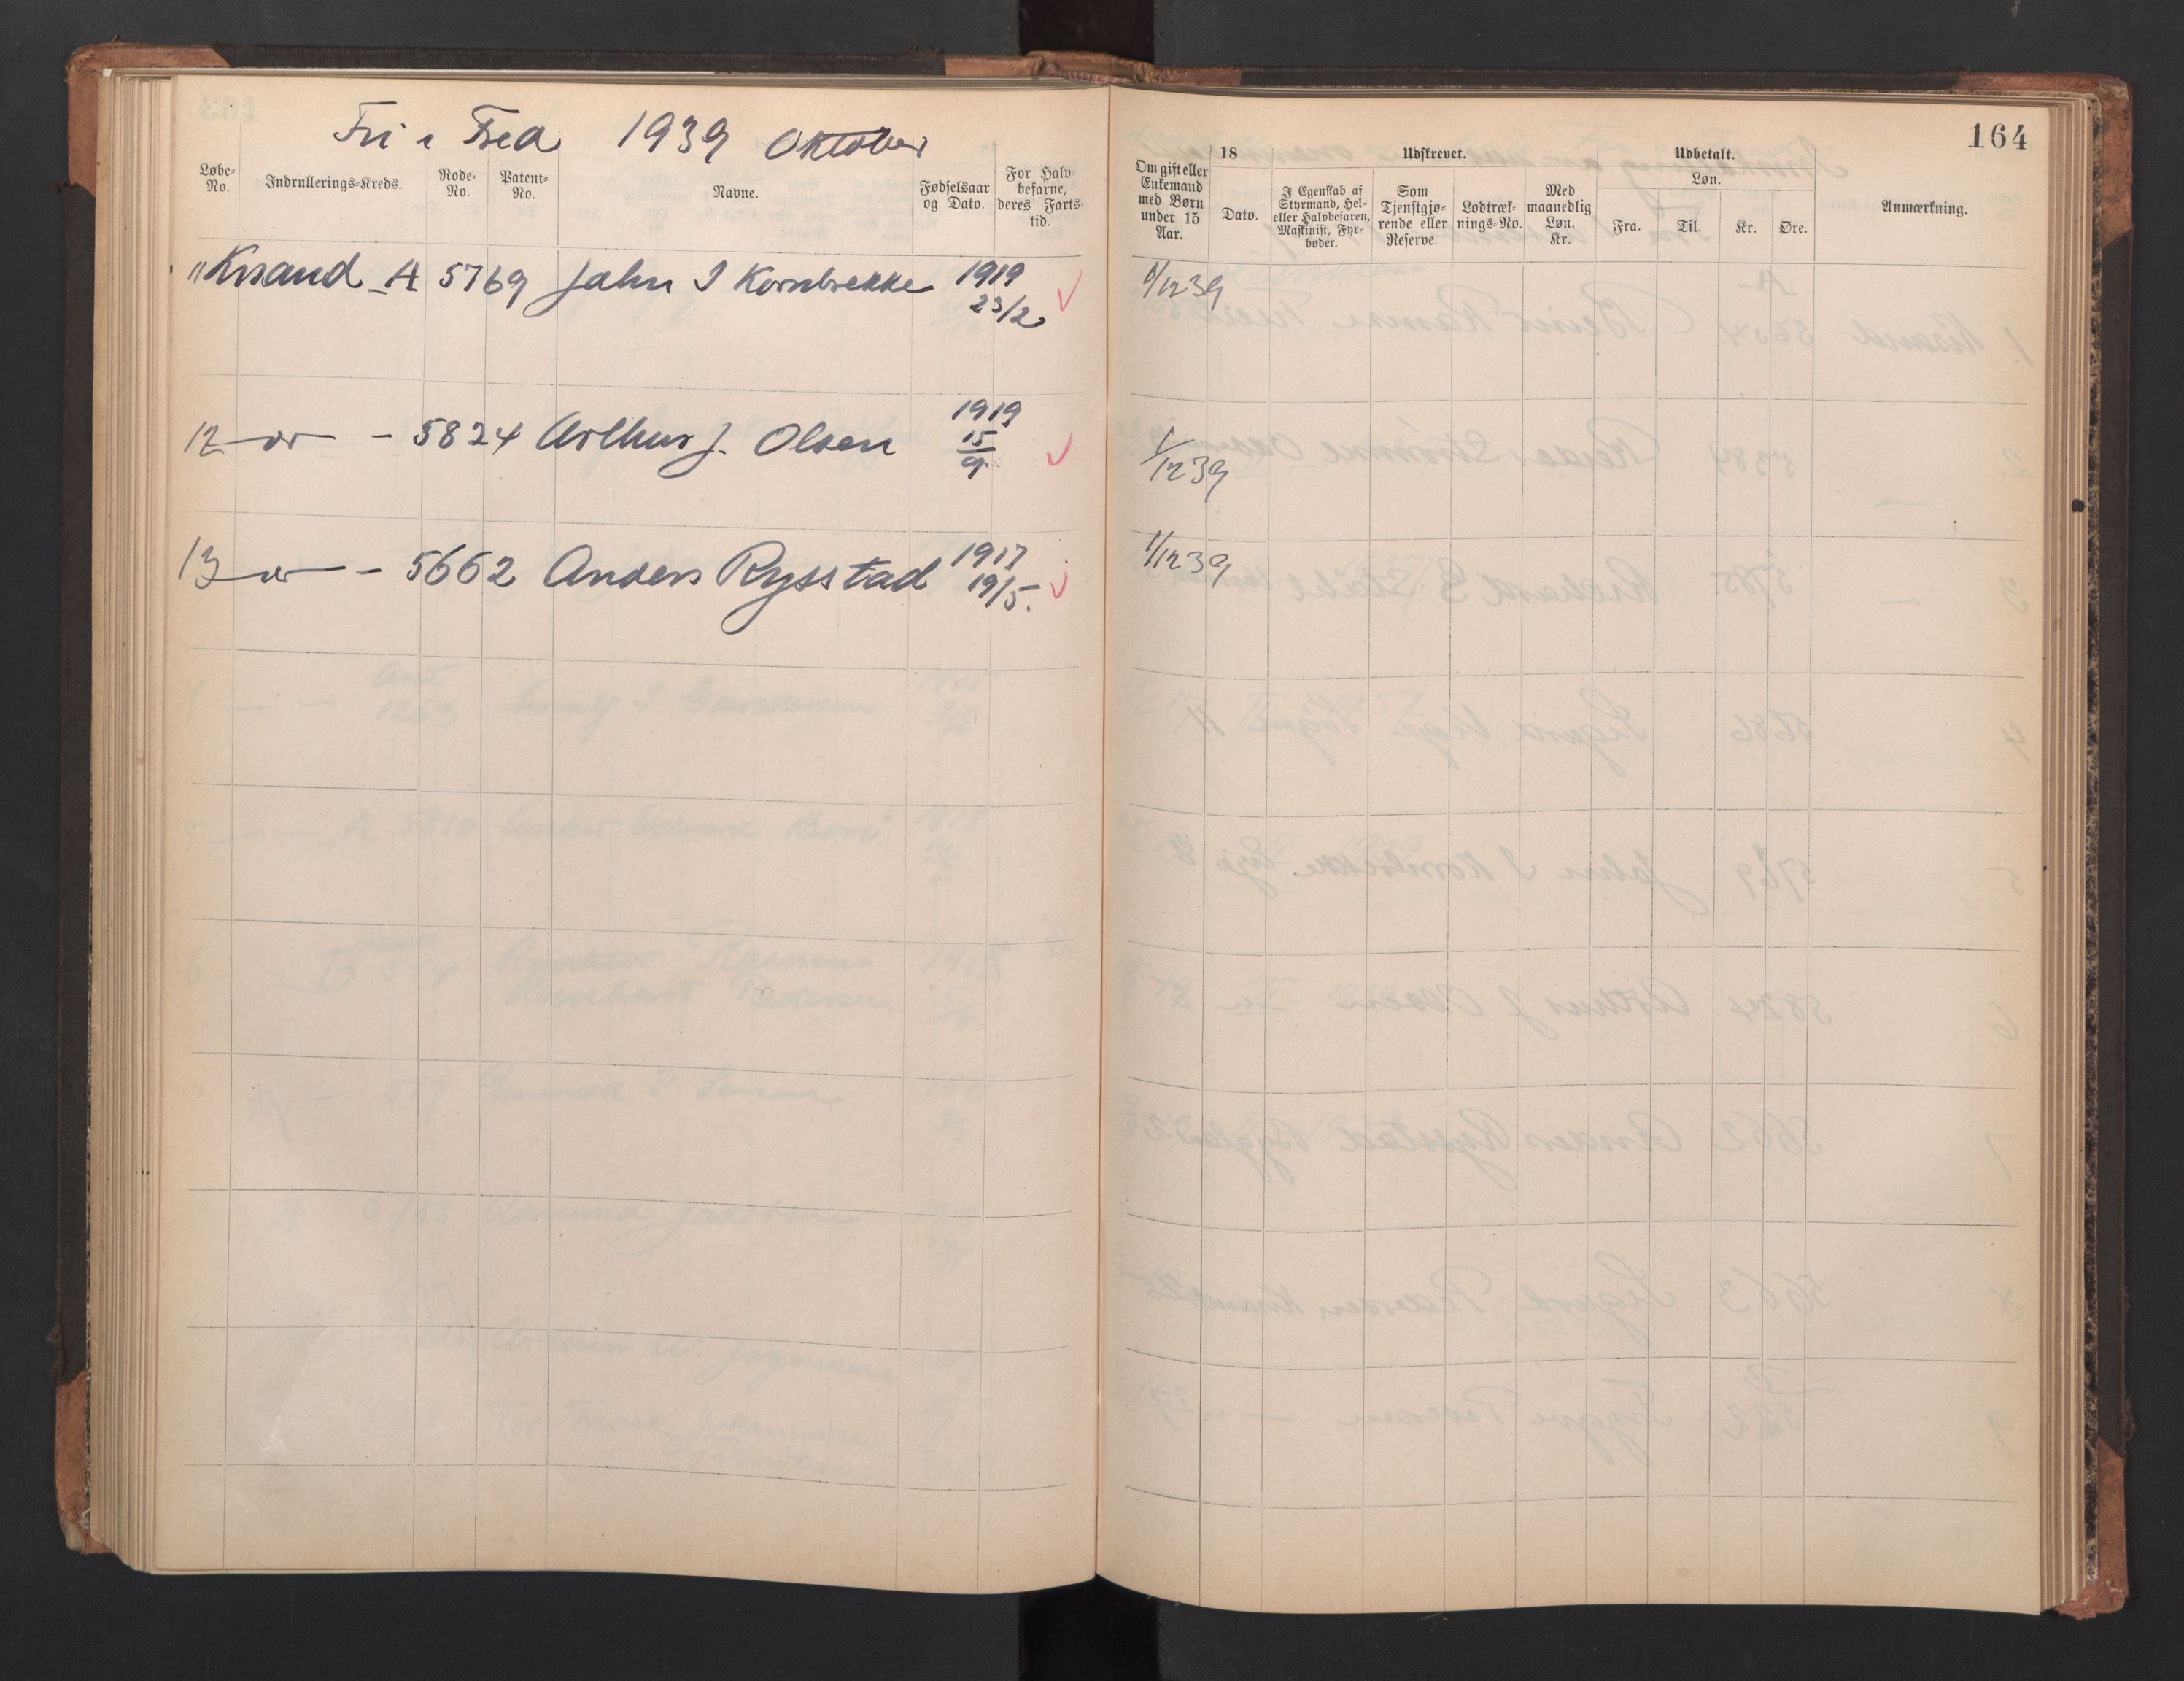 Fri i Fred 1939 Oktober
Løbe-No. Indrullerings-Kreds. Rode-No. Patent-No. Navne. Fødselsaar og Dato. For Halvbefarne, deres Fartstid.
11 Krsand A 5769 John I Kornbrekke 1919 23/2
12 do - 5824 Arthur J. Olsen 1919 15/9
13 do - 5662 Anders Rysstad 1917 19/5.
164
Om gift eller Enkemand med Børn under 15 Aar. 18 Dato. Udskrevet. I Egenskab af Styrmand, Hel- eller Halvbefaren, Maskinist, Fyrbøder. Som Tjenstgjørende eller Reserve. Lodtræknings-No. Med maanedlig Løn. Kr. Udbetalt. Løn. Fra. Til. Kr. Øre. Anmærkning.
1/12 39
1/12 39
1/12 39